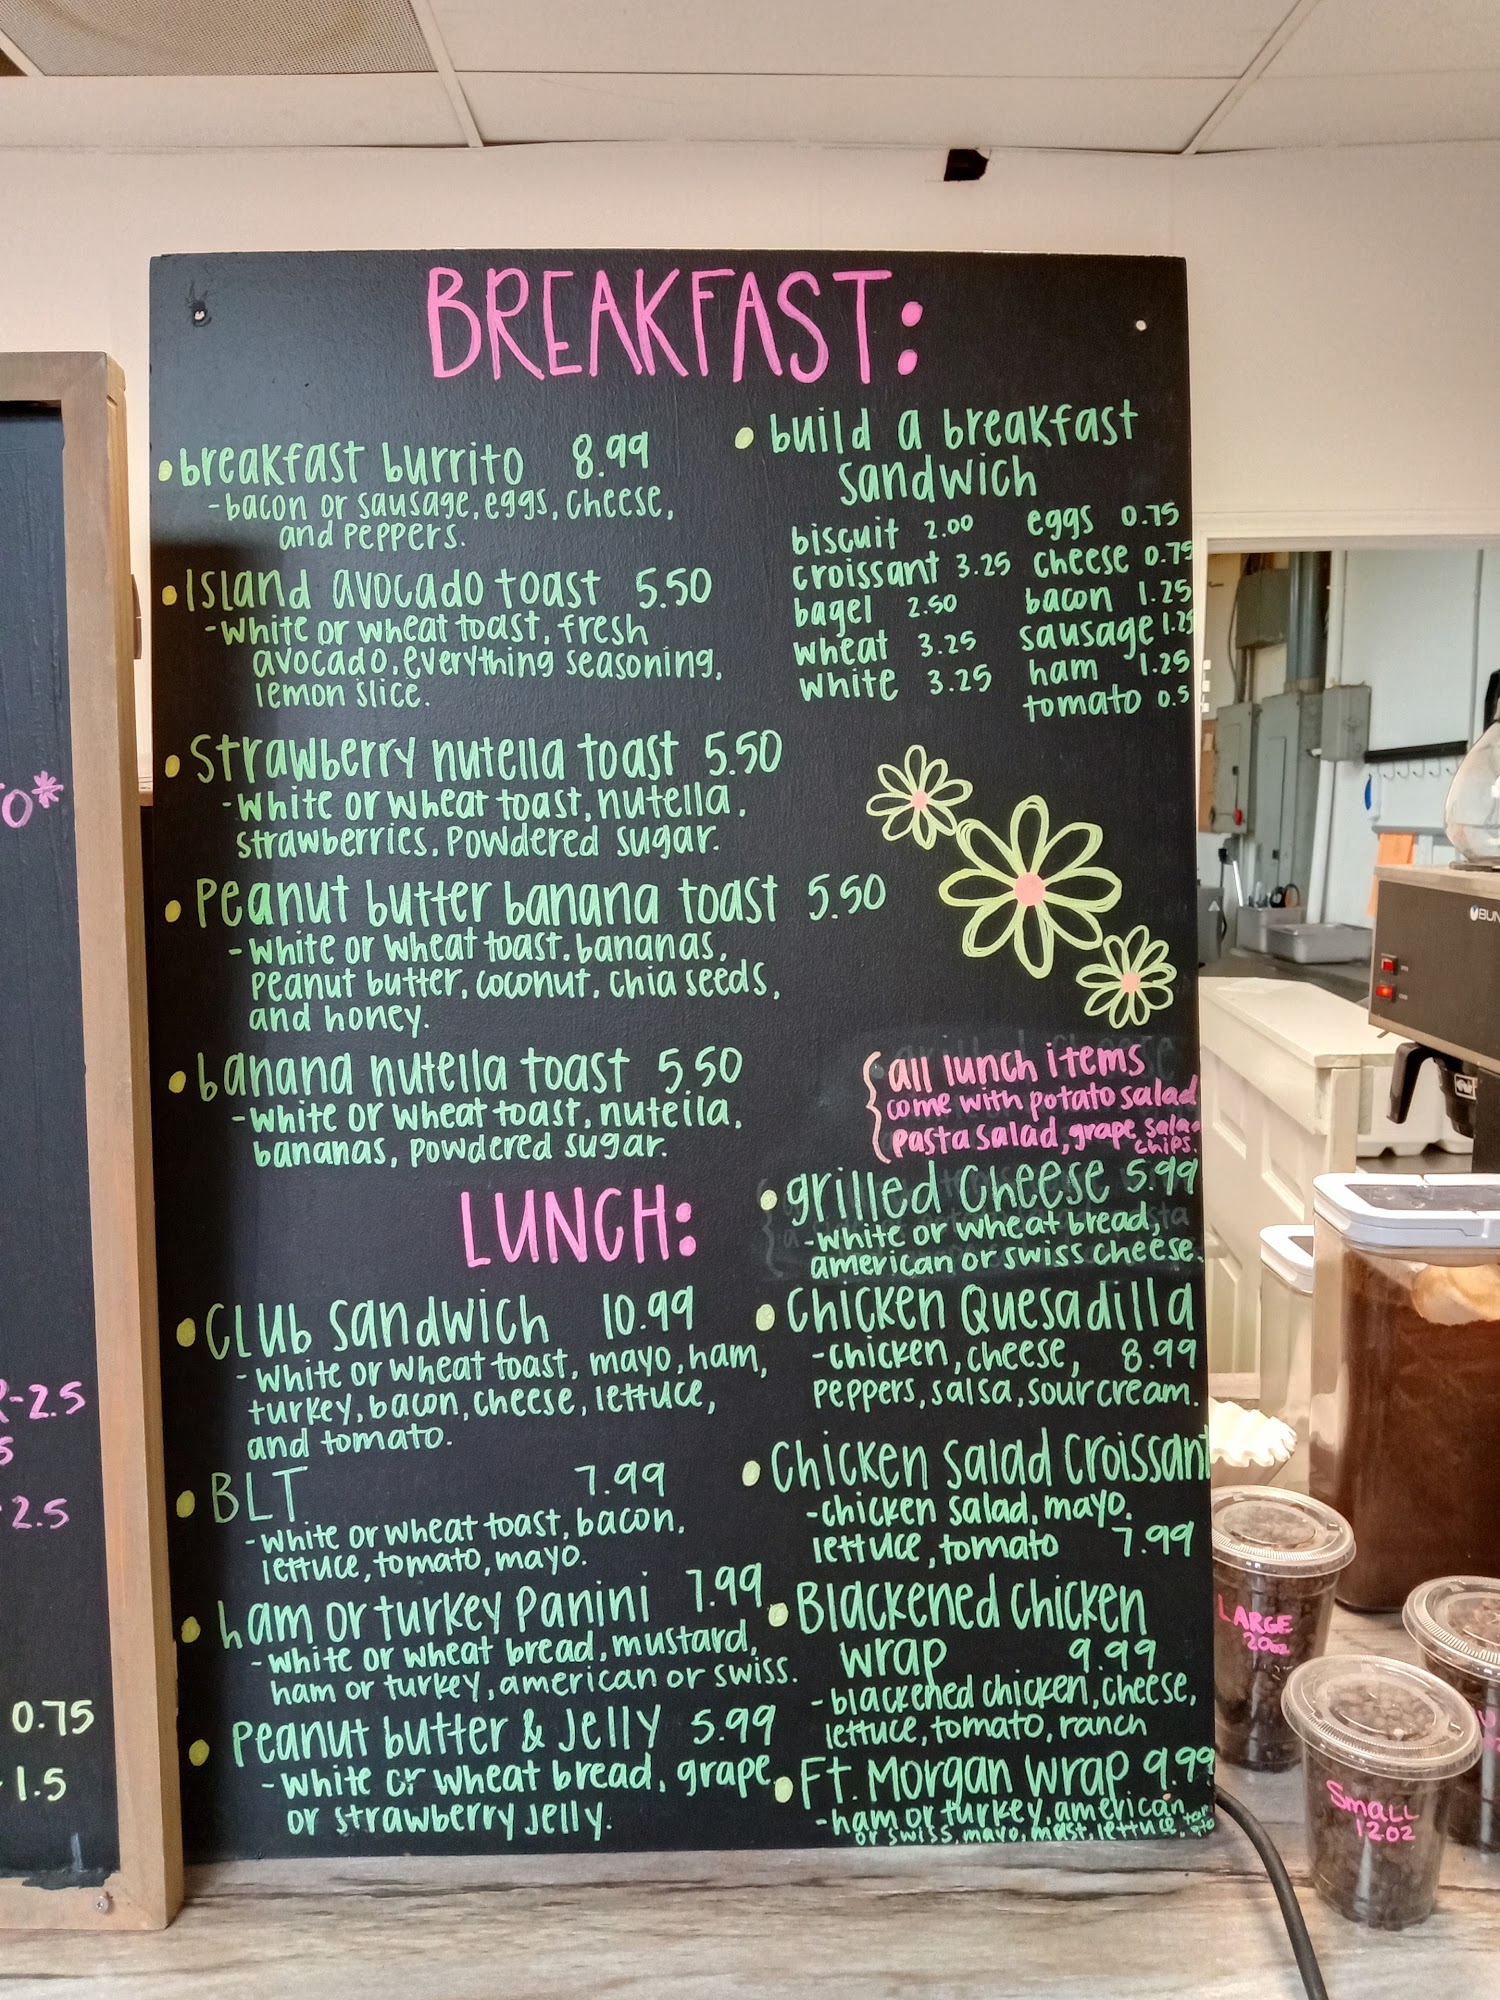 BREAKFAST:
• breakfast burrito 8.99
- bacon or sausage, eggs, cheese,
and peppers.
• Island avocado toast 5.50
- white or wheat toast, fresh
avocado, everything seasoning,
lemon slice.
• Strawberry nutella toast 5.50
- white or wheat toast, nutella,
strawberries, powdered sugar.
• Peanut butter banana toast 5.50
- white or wheat toast, bananas,
peanut butter, coconut, chia seeds,
and honey.
• banana nutella toast 5.50
- white or wheat toast, nutella,
bananas, powdered sugar.
• build a breakfast
sandwich
biscuit 2.00
croissant 3.25
bagel 2.50
wheat 3.25
white 3.25
eggs 0.75
cheese 0.75
bacon 1.25
sausage 1.25
ham 1.25
tomato 0.5
LUNCH:
• Club sandwich 10.99
- white or wheat toast, mayo, ham,
turkey, bacon, cheese, lettuce,
and tomato.
• BLT 7.99
- white or wheat toast, bacon,
lettuce, tomato, mayo.
• ham or turkey Panini 7.99
- white or wheat bread, mustard,
ham or turkey, american or swiss.
• Peanut butter & Jelly 5.99
- white or wheat bread, grape
or strawberry jelly.
all lunch items
come with potato salad
pasta salad, grape salad
chips.
• grilled cheese 5.99
- white or wheat bread,
american or swiss cheese.
• Chicken Quesadilla
- chicken, cheese, 8.99
peppers, salsa, sour cream.
• Chicken Salad Croissant
- chicken salad, mayo,
lettuce, tomato 7.99
• Blackened chicken
wrap 9.99
- blackened chicken, cheese,
lettuce, tomato, ranch
• Ft. Morgan Wrap 9.99
- ham or turkey, american
or swiss, mayo, must, lettuce,
-2.5
2.5
0.75
1.5
BUN
LARGE
20oz
SMALL
12oz